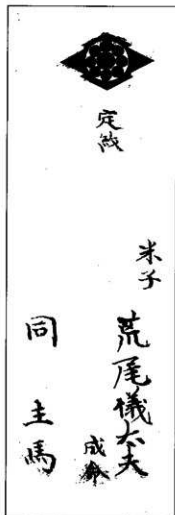 定紋
米子
荒尾儀太夫
成
同 主馬